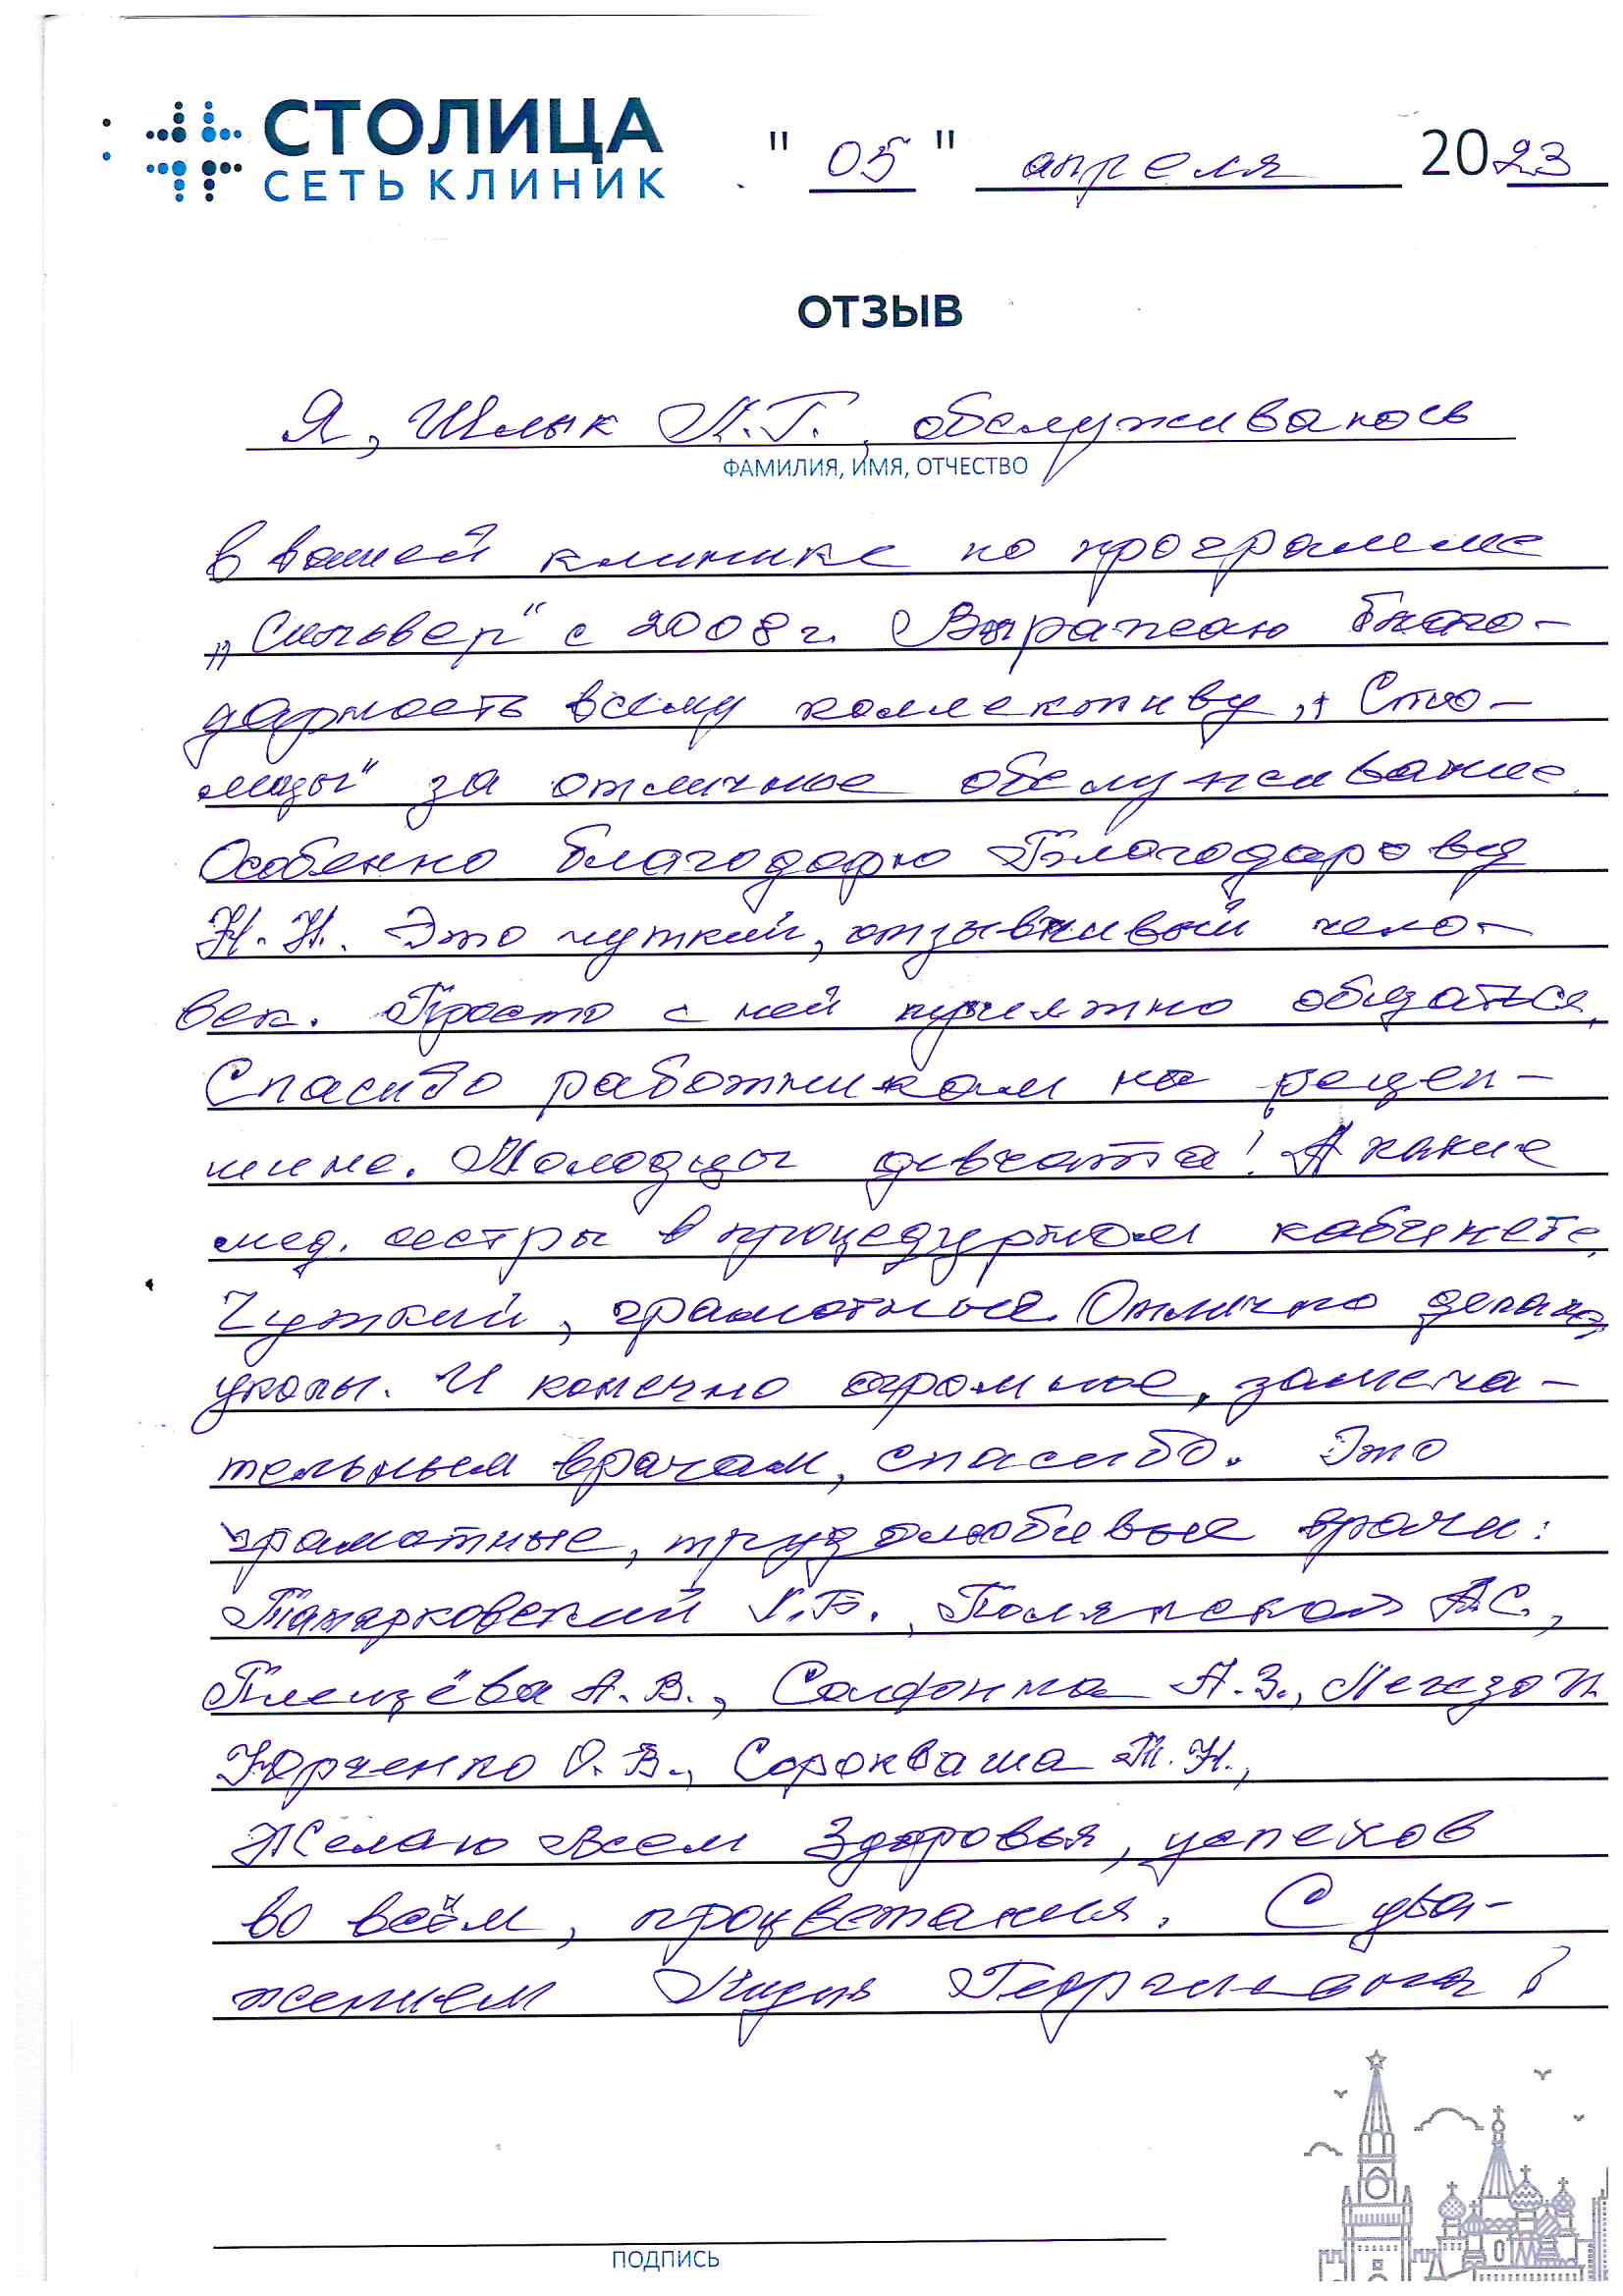 СТОЛИЦА
СЕТЬ КЛИНИК
" 05 " апреля 2023
ОТЗЫВ
Я, Шлык Л.Г., обслуживаюсь
ФАМИЛИЯ, ИМЯ, ОТЧЕСТВО
в вашей клинике по программе
„Сильвер" с 2008 г. Выражаю благо-
дарность всему коллективу „Сто-
лицы" за отличное обслуживание.
Особенно благодарю Благодарову
Н.Н. Это чуткий, отзывчивый чело-
век. Просто с ней приятно общаться.
Спасибо работникам на рецеп-
шине. Молодцы девчата! А какие
мед. сестры в процедурном кабинете.
Чуткий, грамотные. Отлично делают
уколы. И конечно огромное, замеча-
тельным врачам, спасибо. Это
грамотные, трудолюбивые врачи:
Татарковский Полянской А.С.,
Плещёва А.В., Салфонма А.З.,
Юрченко О.В., Сорокваша Т.Н.,
Желаю всем здоровья, успехов
во всём, процветания. С ува-
жением Лидия Георгиевна
ПОДПИСЬ